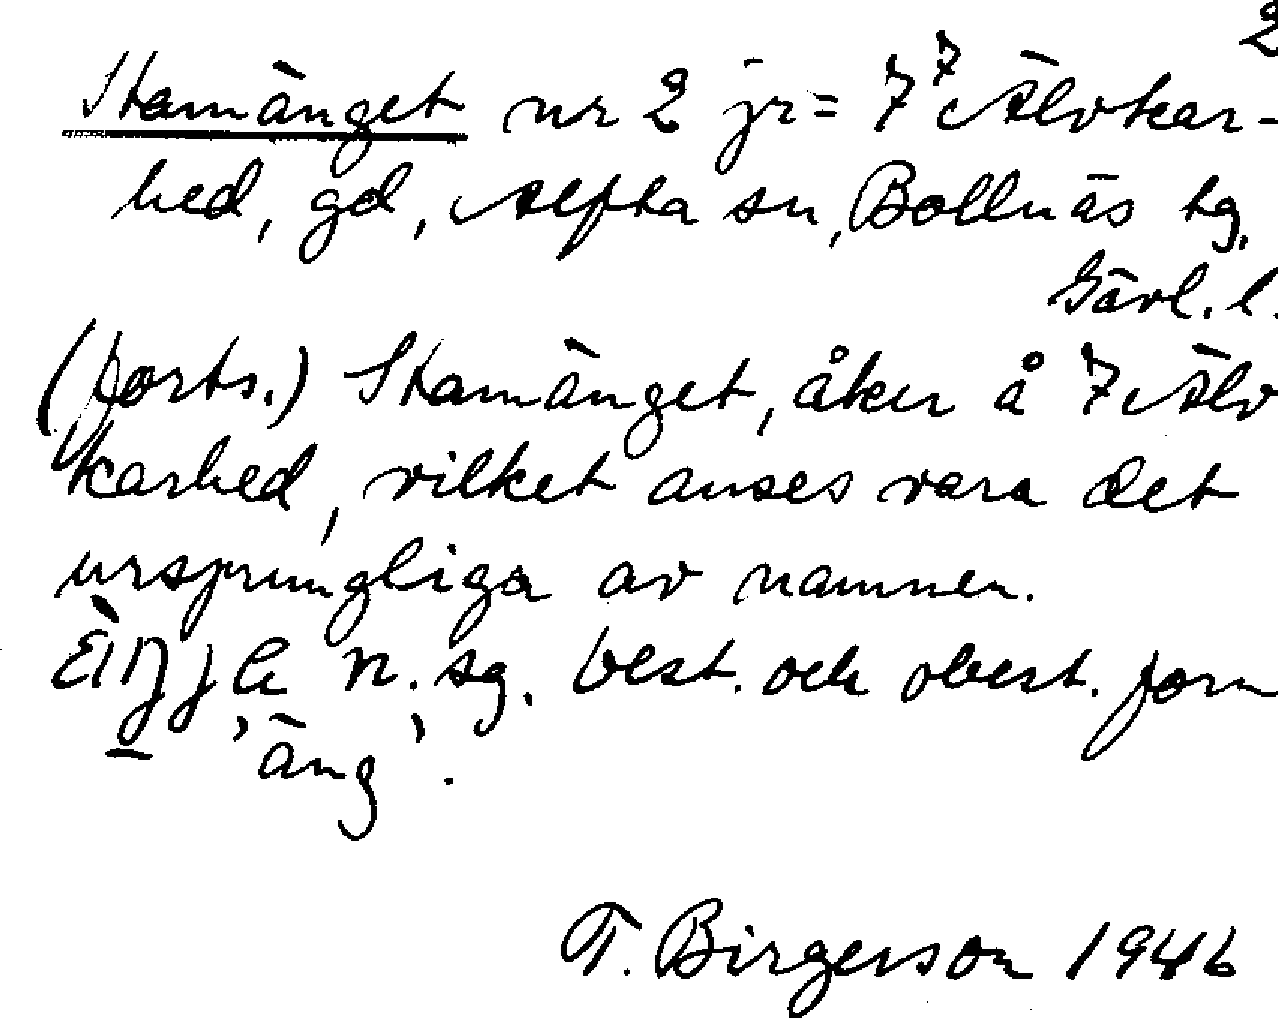 2
Stamänget nr 2 jr = 7⁷ Älvkar-
hed, gd, Alfta sn, Bollnäs tg,
Gävl. l.
(forts.) Stamänget, åker å 7 Älv
karhed, vilket anses vara det
ursprungliga av namnen.
n. sg. best. och obest. form
'äng'.
T. Birgerson 1946